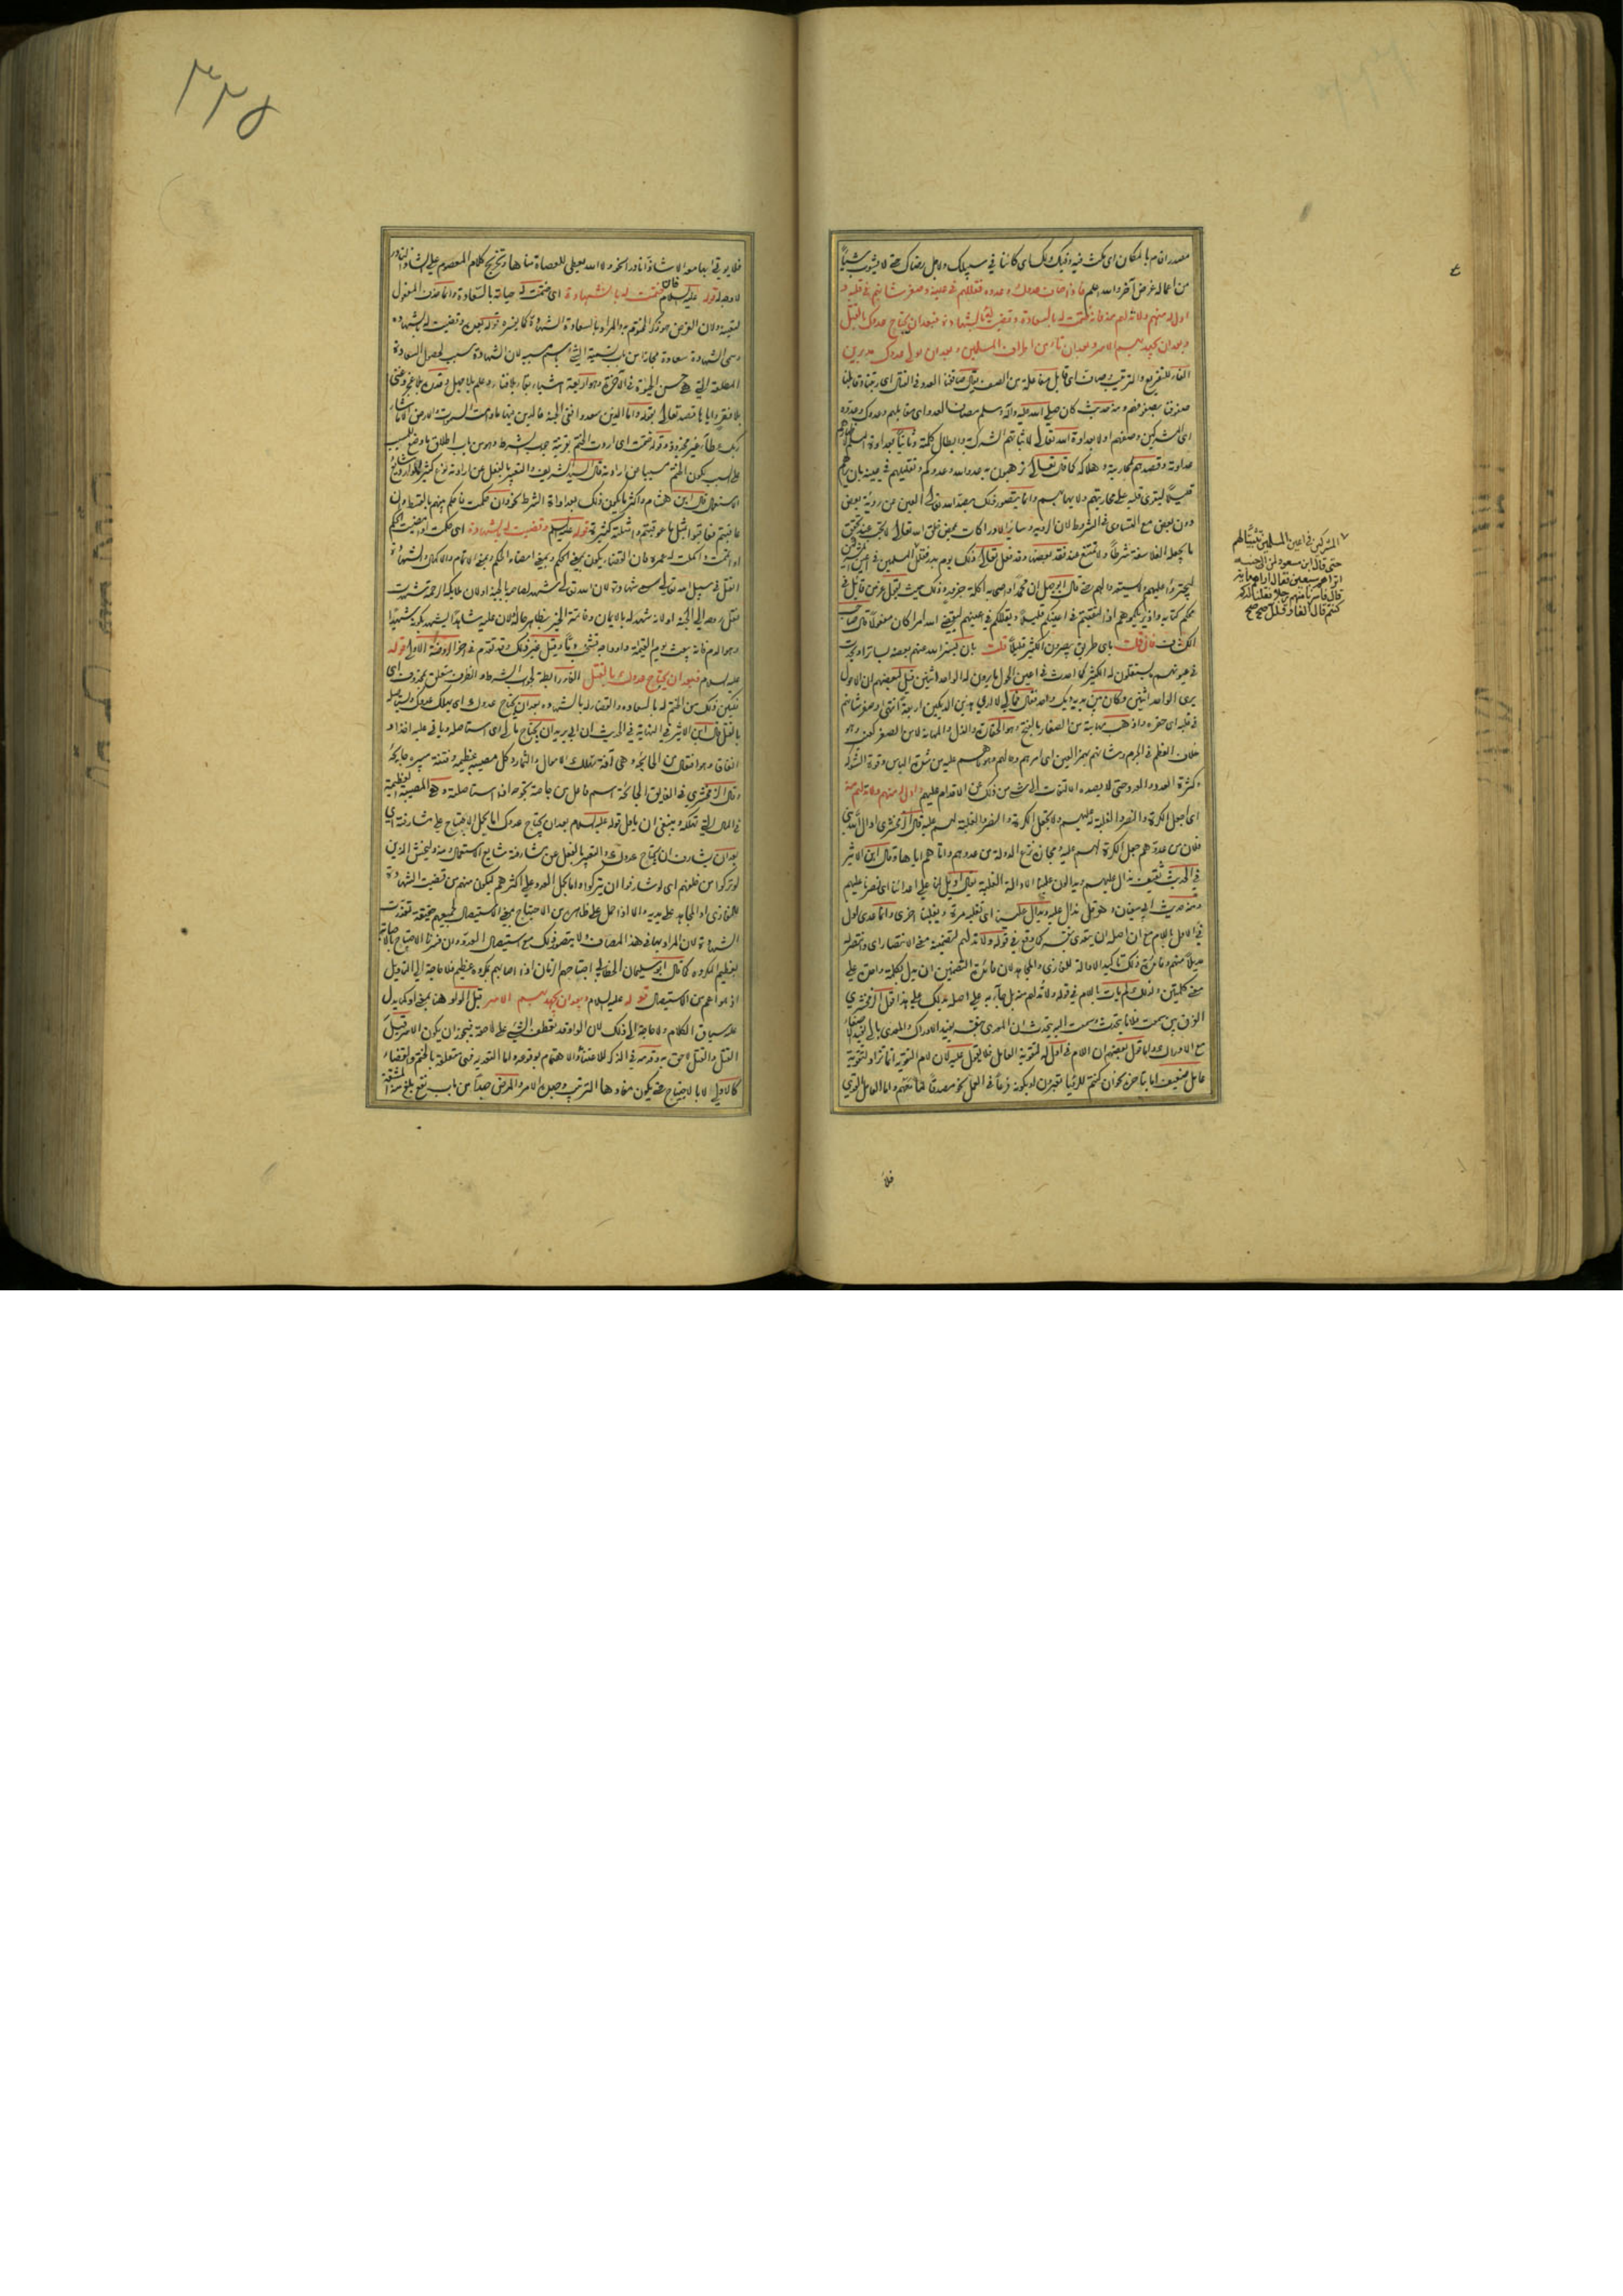 مصدر اقام بالمكان اى مكث فيه وفيك ولك اى كائنا فى سبيلك ولاجل رضاك حتى لا يشوب شيئا
من اعماله غرض آخر والله اعلم فاذا صاف عدوك وعدوه فقللهم فى عينه وصغر شانهم فى قلبه و
ادل له منهم ولا تدلهم منه فان ختمت له بالسعادة وقضيت له بالشهادة فبعد ان يجتاح عدوك بالقتل
وبعد ان يجهد بهم الاسر وبعد ان تأمن اطراف المسلمين وبعد ان يولى عدوك مدبرين
الفاء للتفريع والترتيب وصاف اى قابل مفاعلة من الصف يقال صاففنا العدو فى القتال اى رتبنا وقابلنا
صفوفنا بصفوفهم ومنه حديث كان صلى الله عليه وآله وسلم مصاف العدو اى مقابلهم وعدوك وعدوه
اى المشركين وصفهم اولا بعداوة الله تعالى لاثباتهم الشرك وابطال كلمته وثانيا بعداوة
عداوته وقصدهم محاربته وهلاكه كما قال تعالى ترهبون به عدو الله وعدوكم وتقليلهم فى عينه بان يريهم
قليلا ليقوى قلبه على محاربتهم ولا يهابهم وانما يتصور ذلك بصد الله تعالى العين عن رؤية بعض
دون بعض مع التساوى فى الشروط لان الرؤية وسائر الادراكات بمحض خلق الله تعالى لا يجب عند تحقق
ما يجعله الفلاسفة شرطا ولا تمتنع عند فقد بعضها وقد فعل تعالى ذلك يوم بدر فقلل المسلمين فى اعين المشركين
ليجترؤا عليهم ولا يستعدوا لهم حتى قال ابو جهل ان محمدا واصحابه اكلة جزور وذلك حيث يقول عز من قائل فى
محكم كتابه واذ يريكموهم اذ التقيتم فى اعينكم قليلا ويقللكم فى اعينهم ليقضى الله امرا كان مفعولا قال صاحب
الكشاف فان قلت باى طريق يبصرون الكثير قليلا قلت بان يستر الله عنهم بعضه بساتر او يحدث
فى عيونهم ما يستقلون له الكثير كما احدث فى اعين الحول ما يرون له الواحد اثنين قيل لبعضهم ان الاحول
يرى الواحد اثنين وكان بين يديه ديك واحد فقال مالى لا ارى هذين الديكين اربعة انتهى وصغر شانهم
فى قلبه اى حقره واذهب مهابته من الصغار بالفتح وهو الحقارة والذل والمهانة لا من الصغر كعنب وهو
خلاف العظم فى الجرم وشانهم بهمز العين اى امرهم وحالهم
وكثرة العدد والعدد حتى لا يصده الالتفات الى شىء من ذلك عن الاقدام عليهم وادل له منهم ولا تدلهم منه
اى اجعل الكرة والنصر والغلبة له عليهم ولا تجعل الكرة والنصر والغلبة لهم عليه قال الزمخشرى ادال الله بنى
فلان من عدوهم جعل الكرة لهم عليه ومجازه نزع الدولة من عدوهم وآتاهم اياها وقال ابن الاثير
فى حديث ثقيف ندال عليهم ويدالون علينا الادالة الغلبة يقال اديل لنا على اعدائنا اى نصرنا عليهم
ومنه حديث ابى سفيان وهرقل ندال عليه ويدال علينا اى نغلبه مرة ويغلبنا اخرى وانما عدى ادل
فى الاول باللام مع ان اصله ان يتعدى بنفسه كما وقع فى قوله ولا تدلهم لتضمينه معنى الانتصار اى وانتصر له
مديلا منهم وفائدة ذلك تاكيد الادالة للغازى والمجاهد لان فائدة التضمين ان يدل بكلمة واحدة على
معنى كلمتين ولذلك لم يأت باللام فى قوله ولا تدلهم منه بل جاء به على اصله
الفرق بين سمعت فلانا يتحدث وسمعت اليه يتحدث ان المعدى بنفسه يفيد الادراك والمعدى بالى يفيد الاصغاء
مع الادراك واما قول بعضهم ان اللام فى ادل له لتقوية العامل فلا يعول عليه لان لام التقوية انما تزاد لتقوية
عامل ضعيف اما بتاخره نحو ان كنتم للرؤيا تعبرون او بكونه فرعا فى العمل نحو مصدقا لما معهم واما العامل القوى
المشركين فى اعين المسلمين تثبيتا لهم
حتى قال ابن مسعود لمن الى جنبه
اتراهم سبعين فقال اراهم مائة
قال فاسرنا منهم رجلا فقلنا له كم
كنتم قال الفا وقلل صح صح
فلا
٣٣٥
فلا يؤتى بها معه الا شاذا نادرا
لا وجه له قوله عليه السلام فان ختمت له بالشهادة اى ختمت له حياته بالسعادة وانما حذف المفعول
لتعينه ولان الغرض هو ذكر المختوم به والمراد بالسعادة الشهادة كما يفسره قوله بعده وقضيت له بالشهادة
وسمى الشهادة سعادة مجازا من باب تسمية الشىء باسم مسببه لان الشهادة سبب لحصول السعادة
المطلقة التى هى حسن الحياة فى الآخرة وهو اربعة اشياء بقاء بلا فناء وعلم بلا جهل وقدرة بلا عجز وغنى
بلا فقر واياها قصد تعالى بقوله واما الذين سعدوا ففى الجنة خالدين فيها ما دامت السموات والارض الا ما شاء
ربك عطاء غير مجذوذ وقوله ختمت اى اردت الختم بقرينة جواب الشرط وهو من باب اطلاق
الاستعمال قال ابن هشام واكثر ما يكون ذلك بعد اداة الشرط نحو وان حكمت فاحكم بينهم بالقسط وان
عاقبتم فعاقبوا بمثل ما عوقبتم وامثلته كثيرة قوله عليه السلام وقضيت له بالشهادة اى حكمت
او اتممت واكملت له عمره فان القضاء يكون بمعنى الحكم وبمعنى امضاء الحكم وبمعنى الاتمام والاكمال والشهادة
القتل فى سبيل الله تعالى سمى شهادة لان الله تعالى شهد لصاحبه بالجنة او لان ملائكة الرحمة شهدت
نقل روحه الى الجنة او لانه شهد له بالايمان وخاتمة الخير بظاهر حاله او لان عليه شاهدا يشهد بكونه شهيدا
وهو الدم فانه يبعث يوم القيمة واوداجه تشخب دما وقيل غير ذلك وقد تقدم فى آخر الروضة الاولى قوله
عليه السلام فبعد ان يجتاح عدوك بالقتل الفاء رابطة لجواب الشرط والظرف متعلق بمحذوف اى
فليكن ذلك من الختم له بالسعادة والقضاء له بالشهادة بعد ان يجتاح عدوك اى يهلك عدوك ويستاصله
بالقتل قال ابن الاثير فى النهاية فى الحديث ان ابى يريد ان يجتاح مالى اى يستاصله وياتى عليه اخذا و
انفاقا وهو افتعال من الجائحة وهى آفة تهلك الاموال والثمار وكل مصيبة عظيمة وفتنة مبيرة جائحة
وقال الزمخشرى فى الفايق الجائحة اسم فاعل من جاحته تجوحه اذا استاصلته وهى المصيبة العظيمة
فى المال التى تهلكه وينبغى ان يحمل قوله عليه السلام بعد ان يجتاح عدوك اما بحمل الاجتياح على مشارفته اى
بعد ان يشارف ان يجتاح عدوك والتعبير بالفعل عن مشارفته شايع الاستعمال ومنه وليخش الذين
لو تركوا من خلفهم اى لو شارفوا ان يتركوا واما بحمل العدو على اكثرهم ليكون منهم من قضيت الشهادة
للغازى او المجاهد على يديه والا اذا حمل على ظاهره من الاجتياح بمعنى الاستيصال لجميعهم حقيقة تعذرت
الشهادة لان المراد بها فى هذا المصاف ولا يتصور ذلك مع استيصال العدو
بعظيم المكروه كما قال ابو سليمان الخطابى اجتاحهم الزمان اذا اصابهم بمكروه عظيم فلا حاجة الى التاويل
اذ هو اعم من الاستيصال قوله عليه السلام وبعد ان يجهد بهم الاسر قيل الواو هنا بمعنى او كما يدل
عليه سياق الكلام ولا حاجة الى ذلك لان الواو قد تعطف الشىء على لاحقه فيجوز ان يكون الاسر قبل
القتل والقتل لاحق به وقدمه فى الذكر للاعتناء والاهتمام بوقوعه
كالاولى لا بالاجتياح حتى يكون مفادها الترتيب وجهد الامر والمرض جهدا من باب نفع بلغ منه المشقة